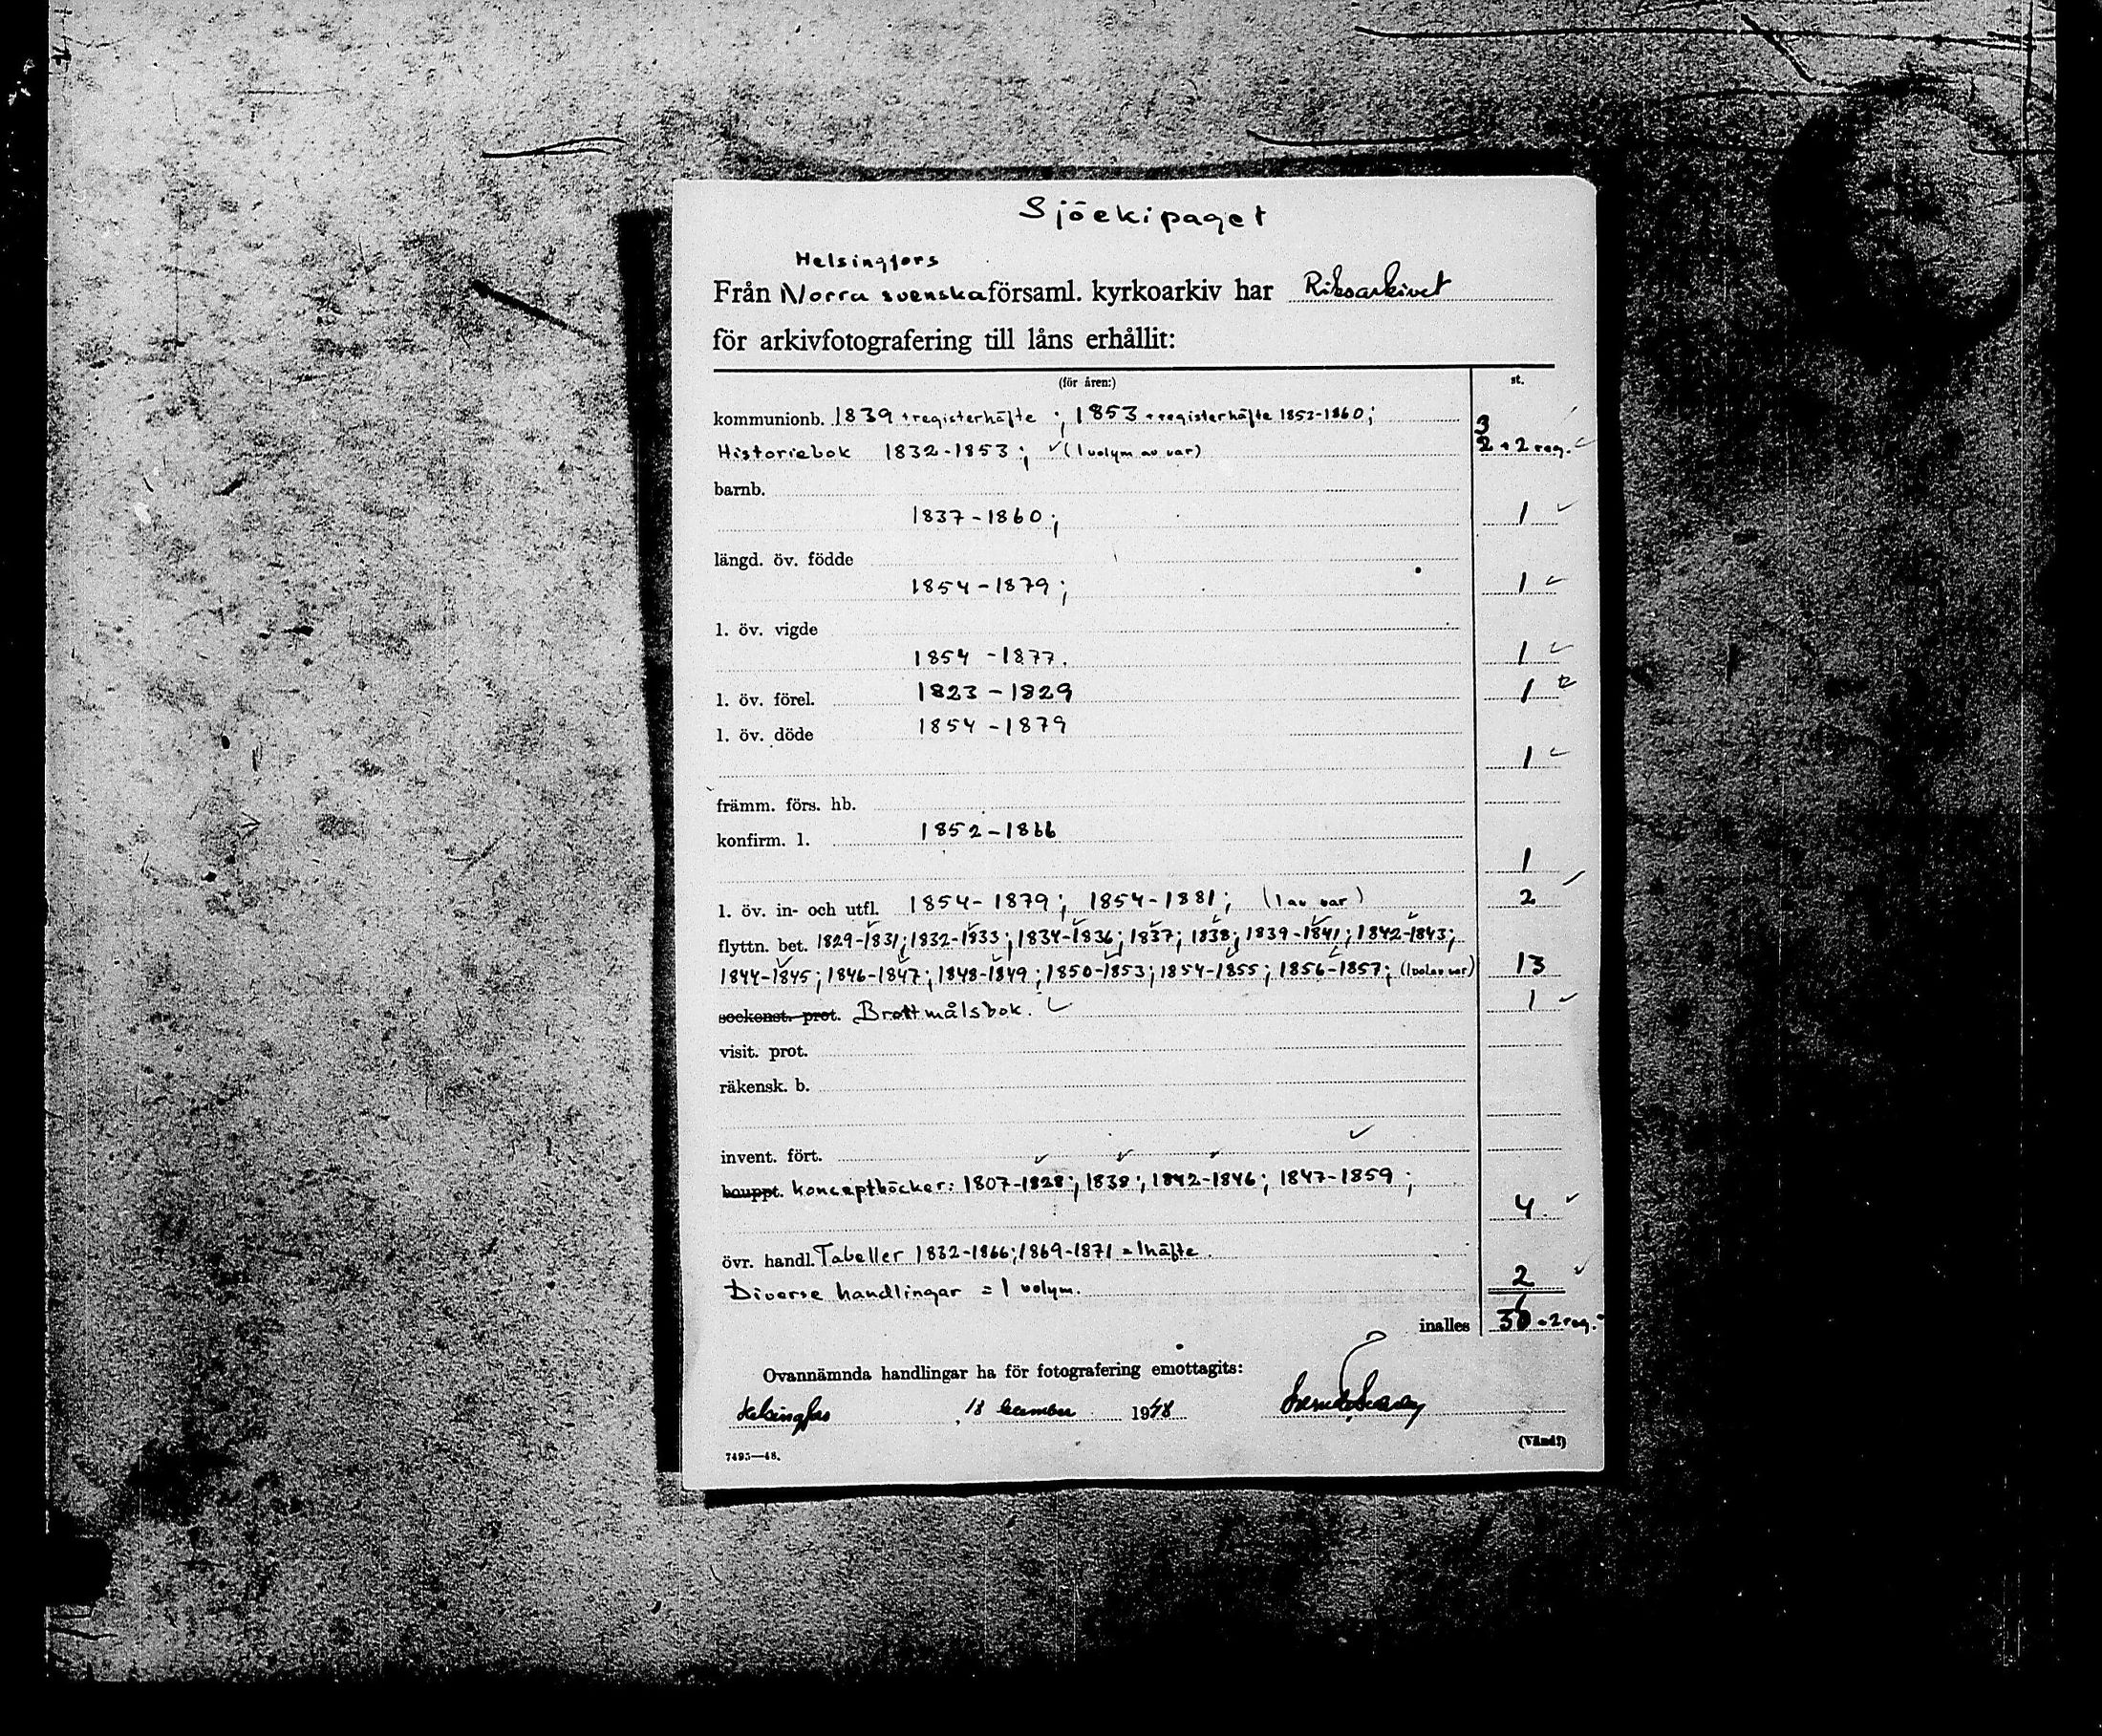 Sjöekipaget
Helsingfors
Från Norra svenska församl. kyrkoarkiv har Riksarkivet
för arkivfotografering till låns erhållit:
(för åren:) st.
kommunionb. 1839 + registerhäfte ; 1853 + registerhäfte 1853-1860; 3
Historiebok 1832-1853; (1 volym av var) 2 + 2 reg.
barnb.
1837-1860; 1
längd. öv. födde
1854-1879; 1
l. öv. vigde
1854-1877. 1
l. öv. förel. 1823-1829 1
l. öv. döde 1854-1879
1
främm. förs. hb.
konfirm. l. 1852-1866
1
l. öv. in- och utfl. 1854-1879; 1854-1881; (1 av var) 2
flyttn. bet. 1829-1831; 1832-1833; 1834-1836; 1837; 1838; 1839-1841; 1842-1843;
1844-1845; 1846-1847; 1848-1849; 1850-1853; 1854-1855; 1856-1857; (1 vol av var) 13
sockenst. prot. Brottmålsbok. 1
visit. prot.
räkensk. b.
invent. fört.
bouppt. Konceptböcker: 1807-1828; 1838; 1842-1846; 1847-1859;
4
övr. handl. Tabeller 1832-1866; 1869-1871 = 1 häfte.
Diverse handlingar = 1 volym. 2
inalles 2 reg.
Ovannämnda handlingar ha för fotografering emottagits:
Helsingfors, 18 december 1948
(Vänd!)
7495—48.